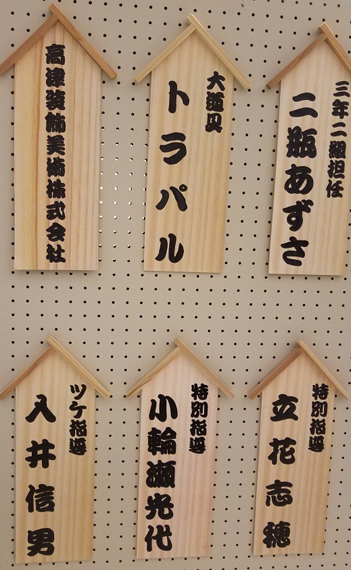 三年二組担任
二瓶あずさ
大道具
トラパル
高建装飾美術株式会社
特別指導
立花志穂
特別指導
小輪瀬光代
ツケ指導
入井信男